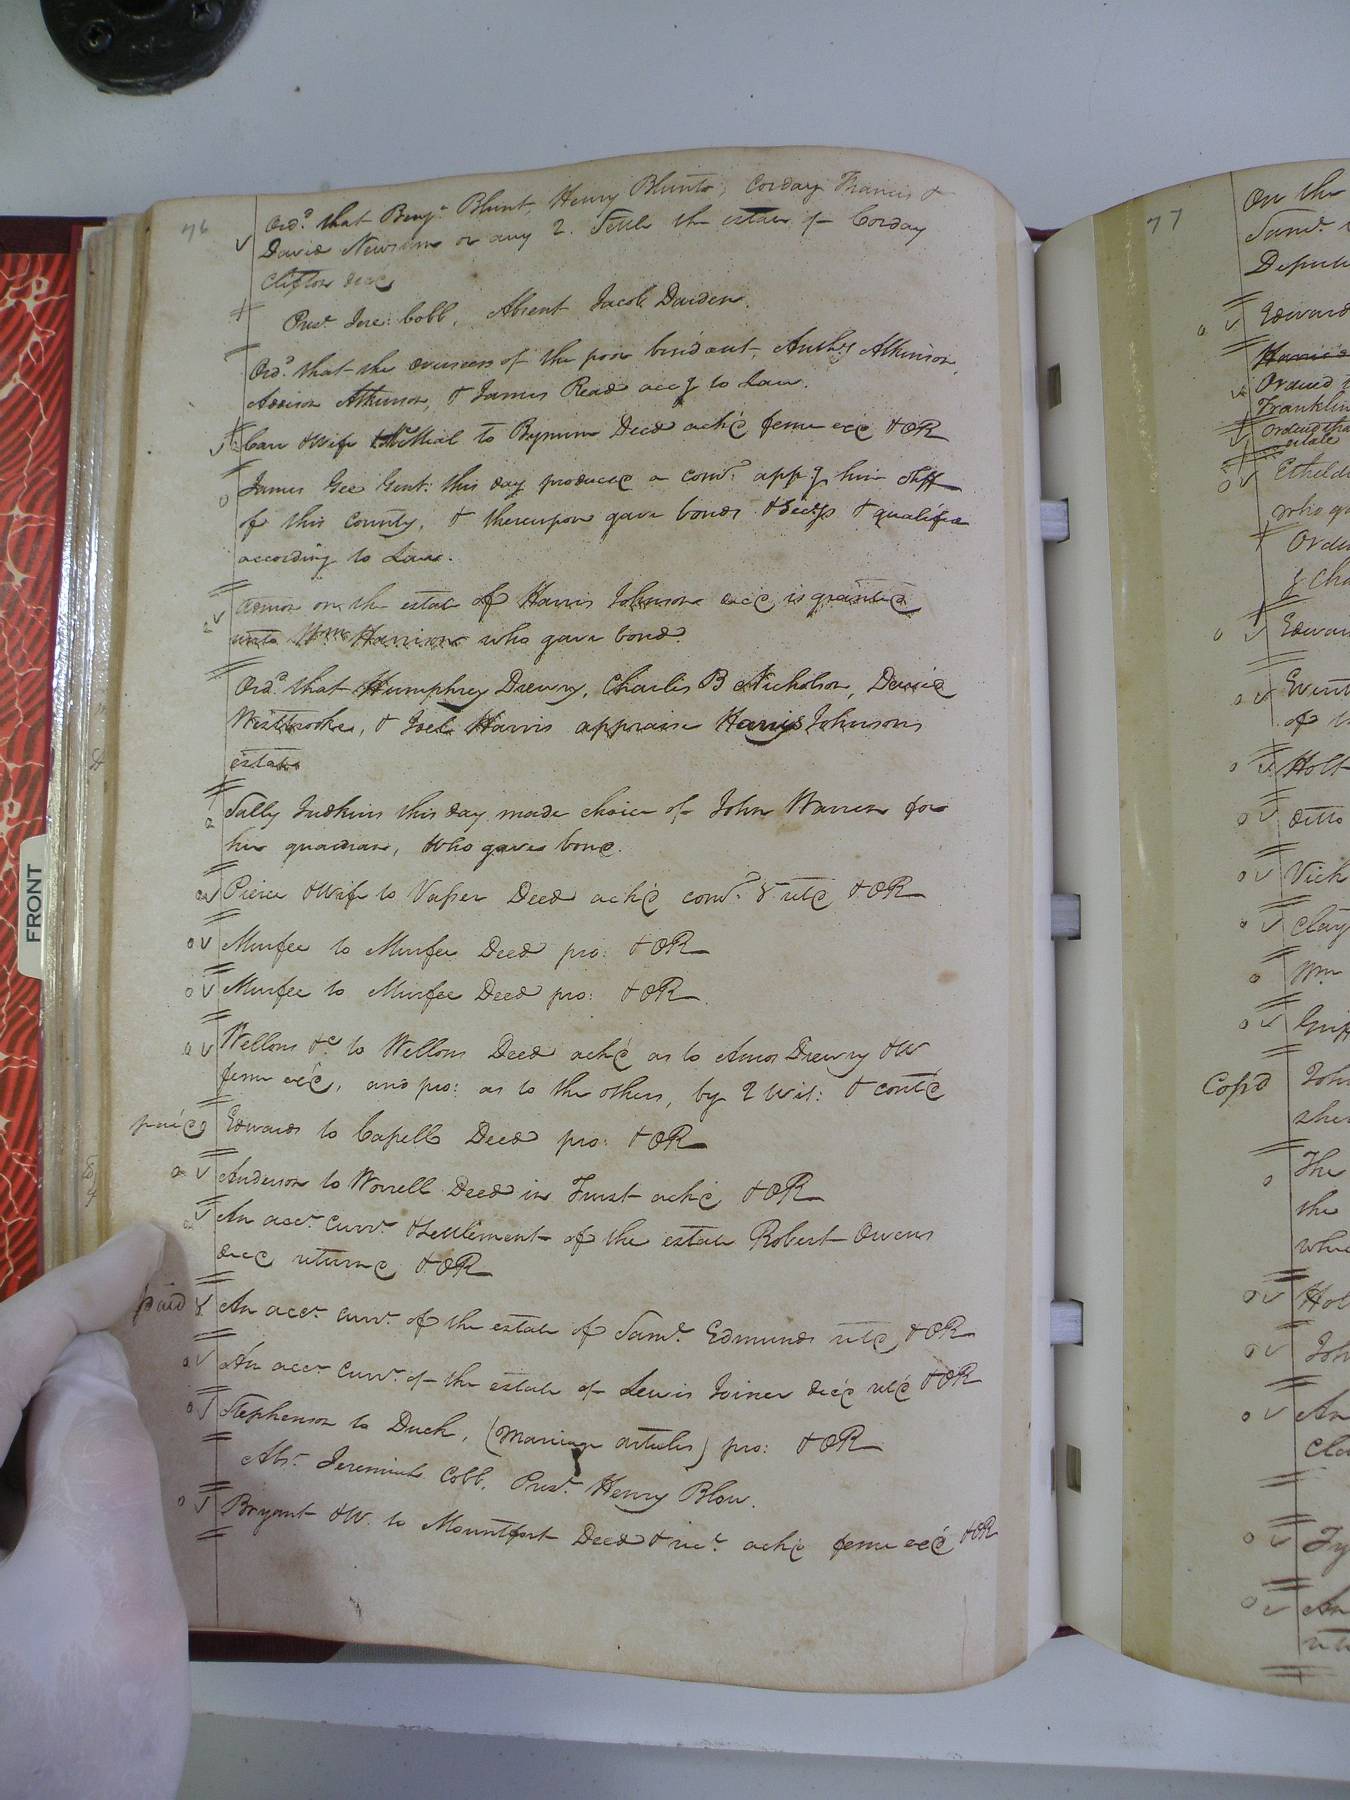 76
Ord.d that Benj.n Blunt, Henry Blunt, Corday Francis &
David Newsum or any 2. Settle the estate of Corday
Clifton decd
Pres.t Jere: Cobb. Absent Jacob Darden.
Ord.d that the overseers of the poor bind out, Anth.y Atkinson,
Addison Atkinson, & James Read accg to Law.
Carr & wife to Bynum Deed ack'd feme exd & OR
James Gee Gent: this day produced a com.n appg him Shff
of this County, & thereupon gave bonds & Secys & qualified
according to Law.
Admon on the estate of Harris Johnson decd is granted
unto Wm Harrison who gave bond.
Ord.d that Humphrey Drewry, Charles B Nicholson, David
Westbrooke, & Joel Harris appraise Harris Johnsons
estate
Sally Judkins this day made choice of John Warren for
her guardian, who gave bond.
Pierce & Wife to Vasser Deed ack'd com.n & retd & OR
Murfee to Murfee Deed pro: & OR
Murfee to Murfee Deed pro: & OR
Wellons &c to Wellons Deed ack'd as to Amos Drewry & W
feme ex'd, and pro: as to the others, by 2 Wit: & cont'd
paid Edwards to Capell Deed pro: & OR
Anderson to Worrell Deed in Trust ack'd & OR
An acc.t Curr.t & settlement of the estate Robert Owens
decd returned & OR
paid An acc.t Curr.t of the estate of Sam.l Edmunds retd & OR
An acc.t Curr.t of the estate of Lewis Joiner dec'd ret'd & OR
Stephenson to Duck, (Marriage articles) pro: & OR
Abs.t Jeremiah Cobb. Pres.t Henry Blow.
Bryant & W. to Mountfort Deed & rec.t ack'd feme ex'd & OR
FRONT
77
On the
Edward
Ordered
Franklin
estate
who
Orde
Edwar
of
Holt
Ditto
Vick
Clay
Wm
Cop'd Joh
The
the
An
Cla
An